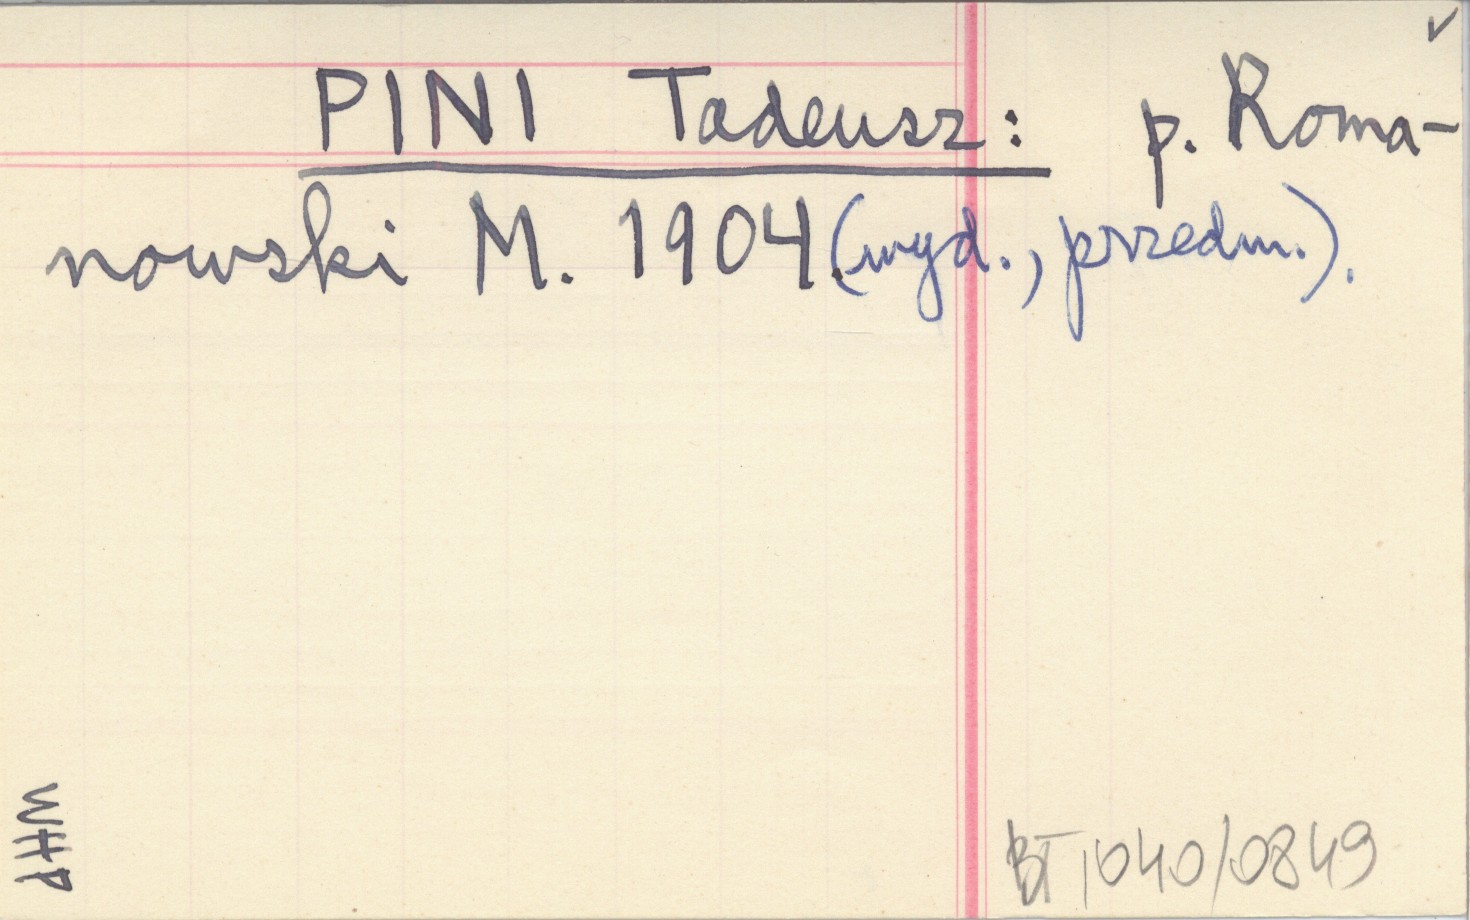 ✓
PINI Tadeusz: p. Roma-
nowski M. 1904. (wyd., przedm.).
WHP
BT 1040/0849